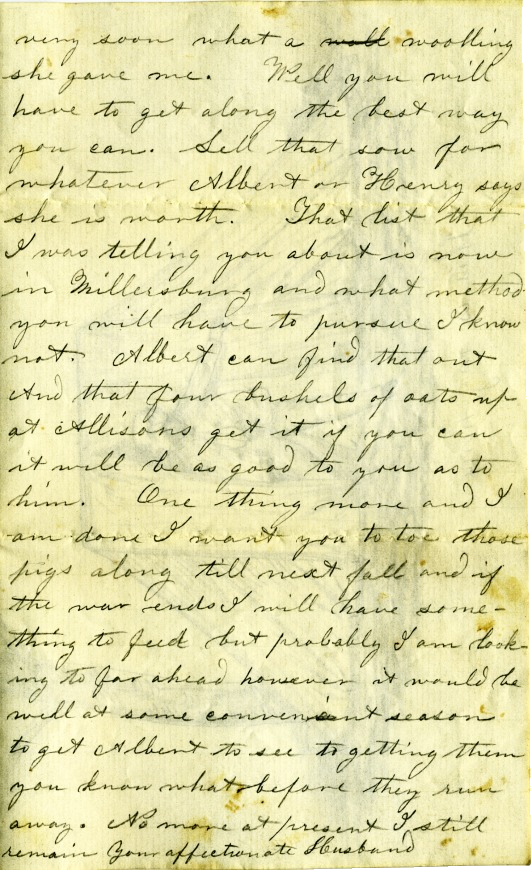 very soon what a woolling
she gave me. Well you will
have to get along the best way
you can. Sell that sow for
whatever Albert or Henry says
she is worth. That list that
I was telling you about is now
in Millersburg and what method
you will have to pursue I know
not. Albert can find that out
And that four bushels of oats up
at Allisons get it if you can
it will be as good to you as to
him. One thing more and I
am done I want you to toe those
pigs along till next fall and if
the war ends I will have some-
thing to feed but probably I am look-
ing to far ahead however it would be
well at some convenient season
to get Albert to see to getting them
you know what before they run
away. No more at present I still
remain Your affectionate Husband